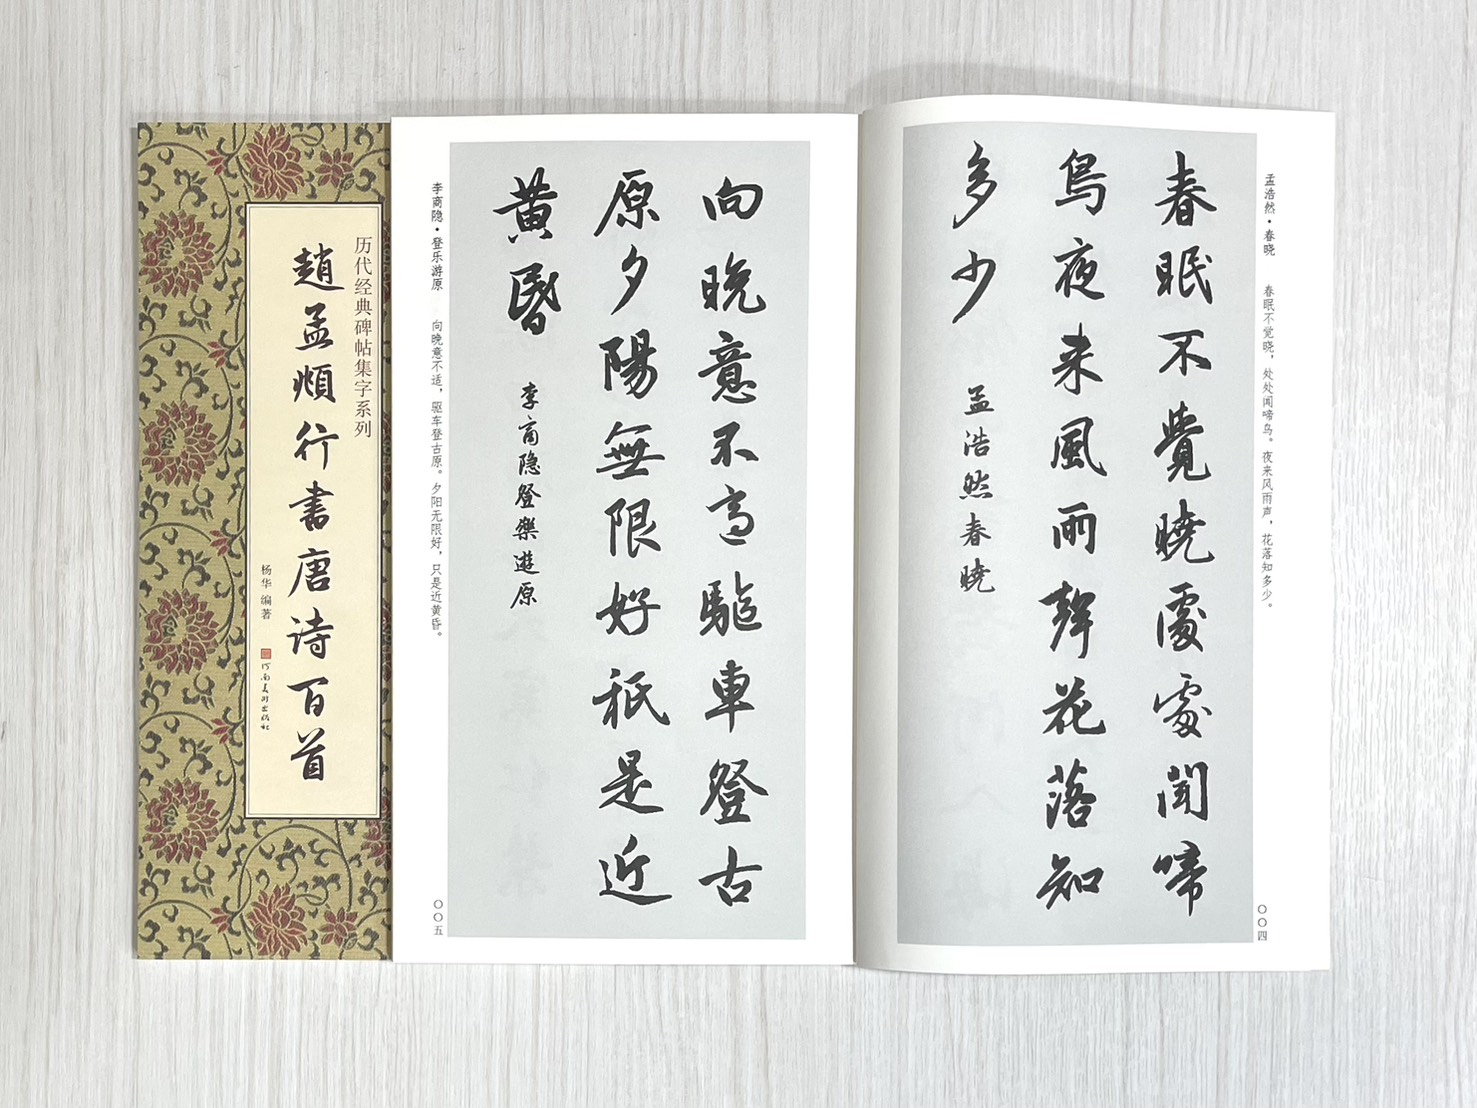 历代经典碑帖集字系列
趙孟頫行書唐诗百首
杨华 编著
河南美术出版社
孟浩然·春晓 春眠不觉晓，处处闻啼鸟。夜来风雨声，花落知多少。
〇〇四
春眠不覺曉處處聞啼
鳥夜来風雨聲花落知
多少 孟浩然春曉
向晚意不適驅車登古
原夕陽無限好祇是近
黄昏 李商隐登樂遊原
李商隐·登乐游原 向晚意不适，驱车登古原。夕阳无限好，只是近黄昏。
〇〇五